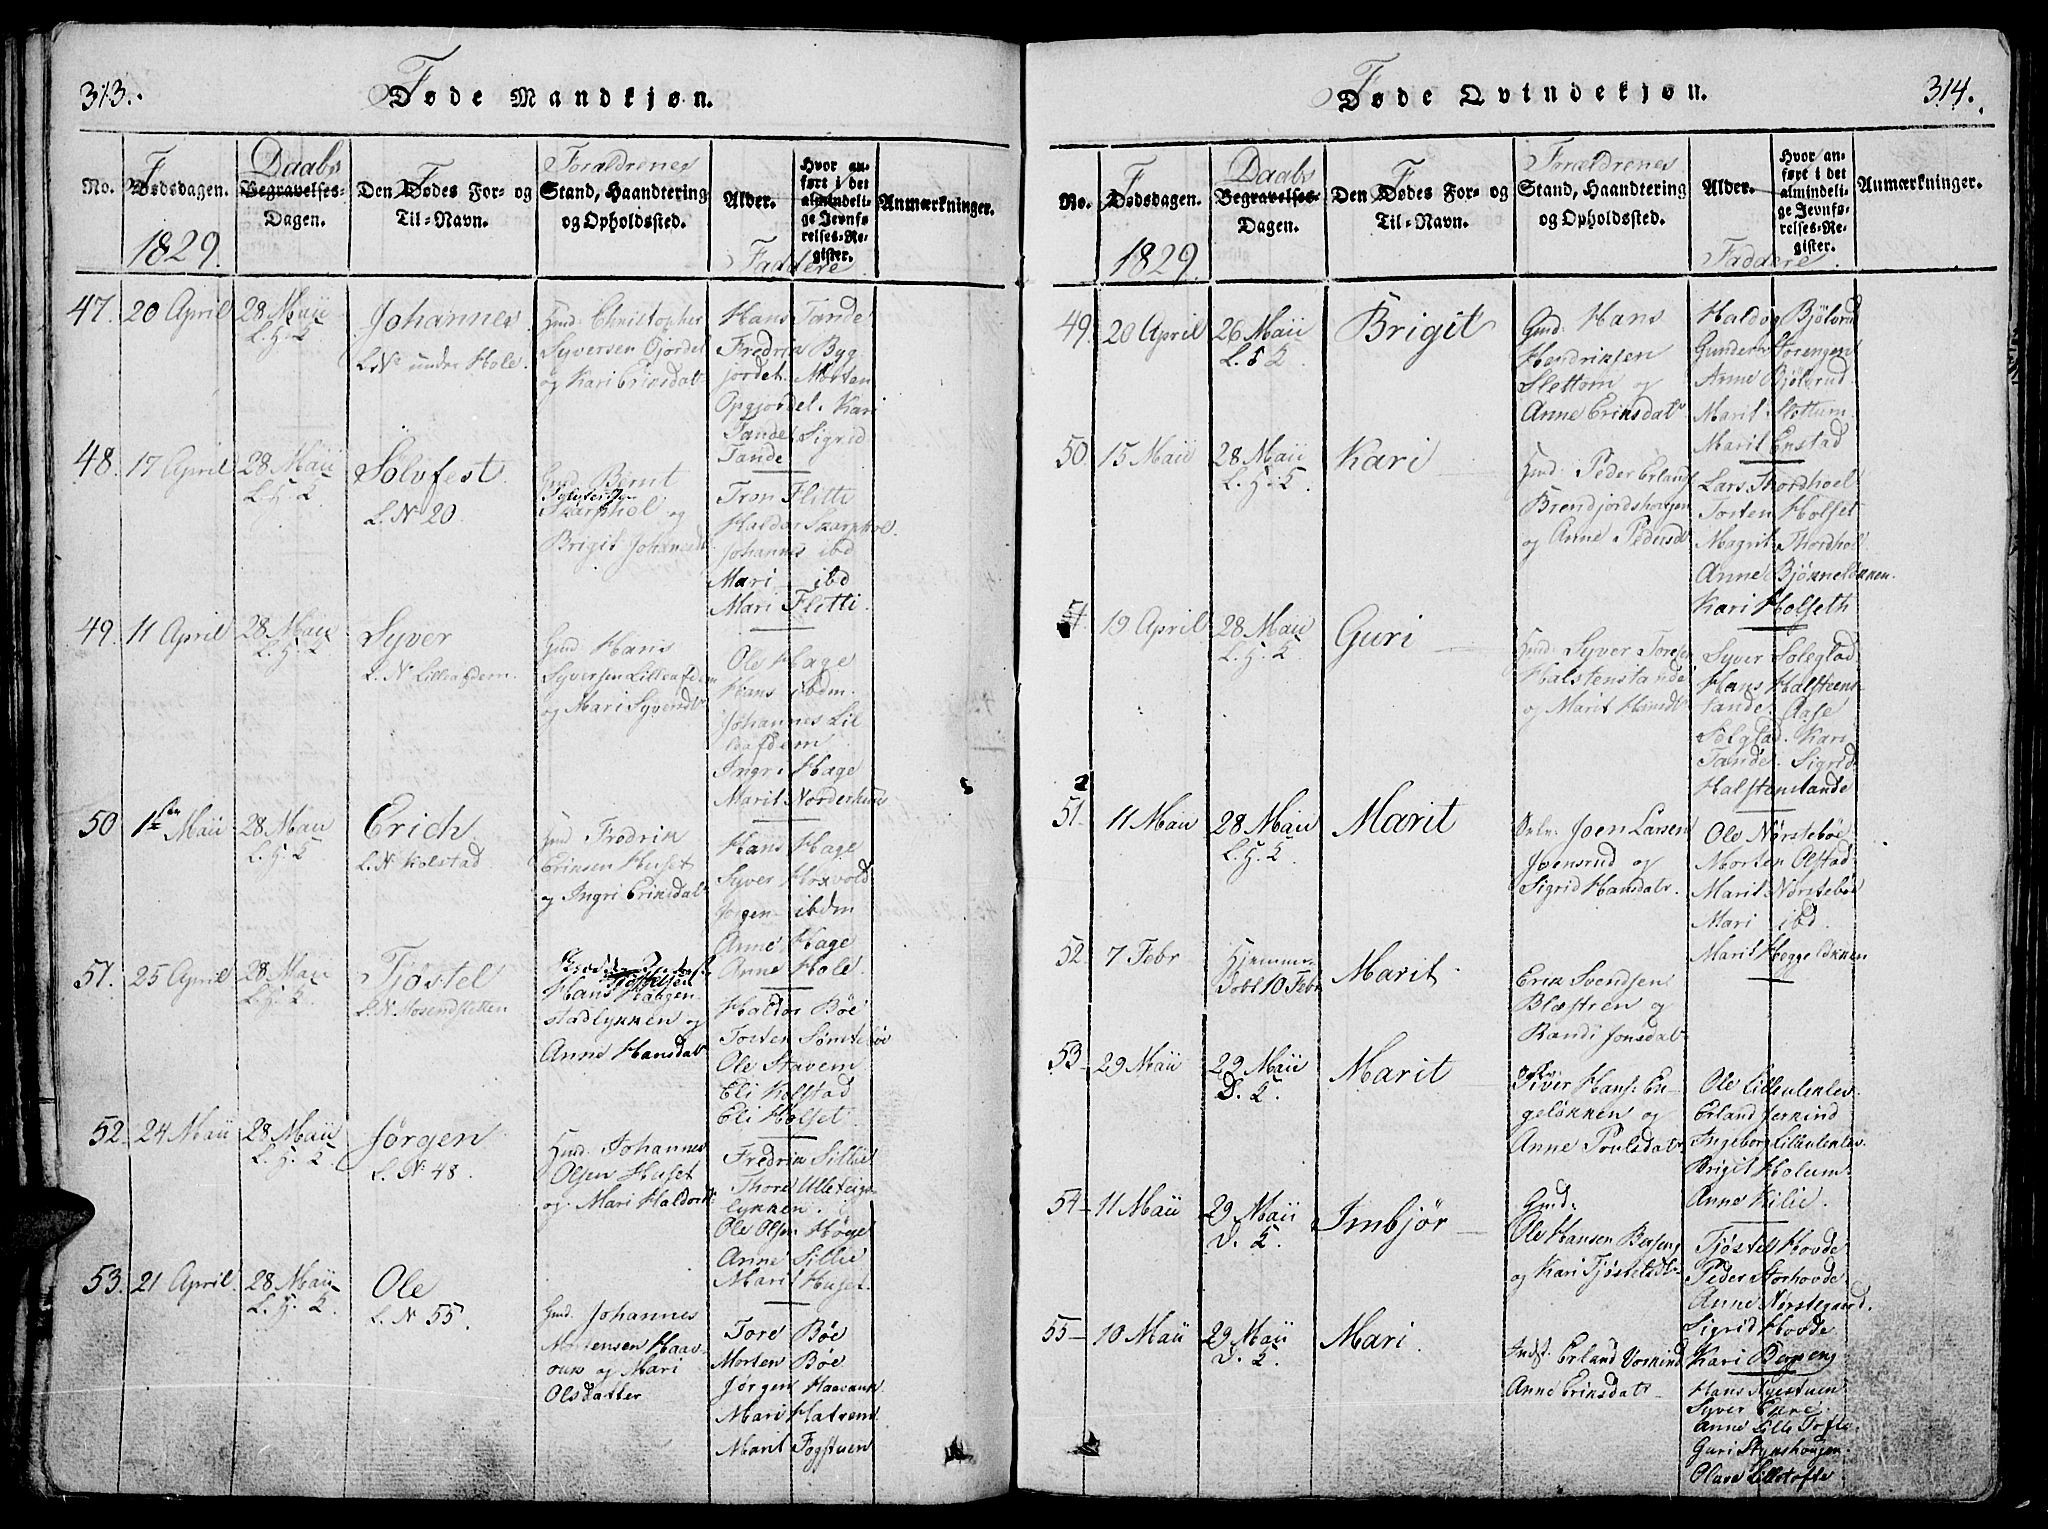 313.
Føde Mandkjøn.
No.
Fødsdagen.
1829.
Daabs
Begravelses-
Dagen.
Den Dødes For- og
Til-Navn.
Forældrenes
Stand, Haandtering
og Opholdssted.
Alder.
Faddere
Hvor an-
ført i det
almindeli-
ge Jevnfø-
relses-Re-
gister.
Anmærkninger.
47. 20 April
28 Maii
L. H. K
Johannes
under Hole.
Gmd. Christopher
Syversen Gjordet
og Kari Eriksdatr
Hans Tande
Fredrik Byg
jordet. Morten
Opgjordet. Kari
Tande. Sigrid
Tande
48. 17 April
28 Maii
L. H. K
Sølvfest
L. N 20
Gmd Bernt
Skarphol og
Brigit Johansdr
Tron Flitti
Haldor Skarphol
Johannes ibd
Mari ibd
Mari Flitti.
49. 11 April
28 Maii
L. H. K
Syver
L. N Lilleafdem.
Gmd Hans
Syversen Lilleafdem
og Mari Syversdr
Ole Hage
Hans ibdm.
Johannes Lil
leafdem
Ingri Hage
Marit Norderhuus
50 1ste Maii
28 Maii
L. H. K.
Erich
L. N Kolstad
Gmd Fredrik
Eriksen Huset
og Ingri Eriksdatr
Hans Hage
Syver Hoxvold
Jørgen ibdm
Anne Hage
Anne Hole
51. 25 April
28 Maii
L. H. K.
Tjøstel
Hans Haugen
stadlykken og
Anne Hansdatr
Haldor Bøe
Tosten Sønstebøe
Ole Stavem
Eli Kolstad
Eli Holset
52. 24 Maii
28 Maii
L. H. K
Jørgen
L. N. 48.
Gmd. Johannes
Olsen Huset
og Mari Haldorsdr
Fredrik Sillie
Thore Ulleteigs-
lykken.
Ole Olsen Høge
Anne Sillie
Marit Huset
53. 21 April.
28 Maii
L. H. K.
Ole
L. N 55.
Gmd. Johannes
Mortensen Haav-
ouk og Mari
Olsdatter
Tore Bøe
Morten Bøe
Jørgen Haavouk
Mari Hatrem
Marit Fogstuen
314.
Føde Qvindekjøn.
No.
Fødsdagen.
1829
Daabs
Begravelses-
Dagen.
Den Dødes For- og
Til-Navn.
Forældrenes
Stand, Haandtering
og Opholdssted.
Alder.
Faddere.
Hvor an-
ført i det
almindeli-
ge Jevnfø-
relses-Re-
gister.
Anmærkninger.
49. 20 April
26 Maii
L. S K.
Brigit
Gmd: Hans
Hendriksen
Slettom og
Anne Eriksdatr
Haldog Bjølrud
Gunder Torengen
Anne Bjølrud
Marit Slettum
Marit Enstad
50. 15 Maii
28 Maii
L. H. K.
Kari
Gmd: Peder Erlans
Brendjordshaugen
og Anne Pedersdr
Lars Thordhoel
Tosten Holset
Magrit Thordhol
Anne Bjøkneløkken.
Kari Holseth
51. 19 April
28 Maii
L. H. K.
Guri
Gmd: Syver Tores
Halstenstande
og Marit Hansdr
Syver Soleglad
Hans Halsteens-
tande. Aase
Solglad. Kari
Tande. Sigrid
Halstenstande
51. 11 Maii
28 Maii
L. H. K.
Marit
Joen Larsen
Joensrud og
Sigrid Hansdatr.
Ole Nørstebøe
Morten Olstad
Marit Nørstebøe
Mari ibd.
Marit Heggeløkken
52. 7 Febr
Hjemme-
døbt 10 Febr
Marit
Erik Svendsen
Blæstren og
Randi Jonsdatr
53. 29 Maii
29 Maii
D. K.
Marit
Siver Hans: En-
geløkken og
Anne Poulsdatr
Ole Lilleulenlev
Erland Jerkind
Ingeborg Lilleulenlev
Brigit Holum
Anne Kilie.
54 11 Maii
29 Maii
D. K.
Imbjør
Gmd:
Ole Hansen Bergeng
og Kari Tjøstelsdr
Tjøstel Hovde
Peder Storhovde
Anne Nørstegaard.
Sigrid Hovde
Kari Bergeng
55 10 Maii
29 Maii
D. K.
Mari.
Indst: Erland Vorkind
Anne Eriksdatr
Hans Nyestuen
Syver Enre.
Anne Lille Tofte
Guri Stynshaugen.
Olave Lilletofte